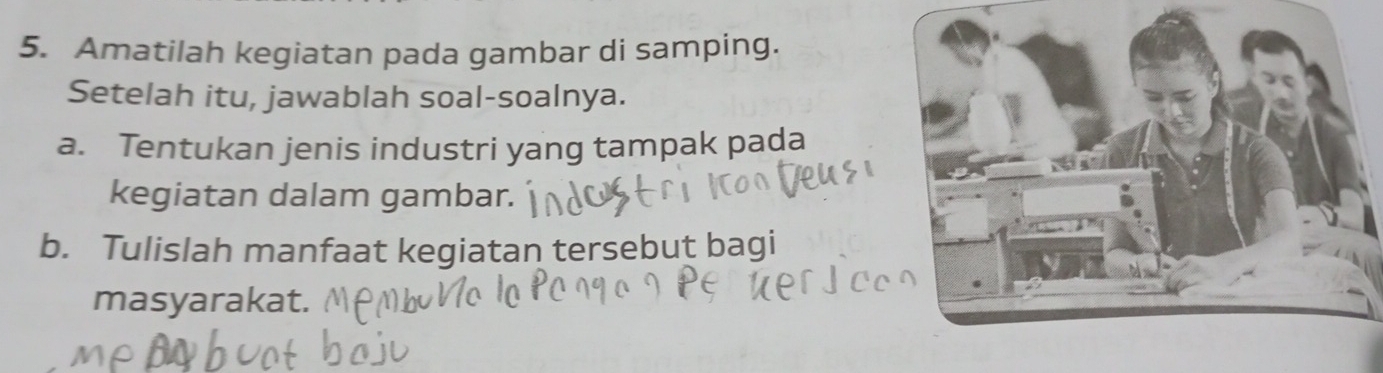 5. Amatilah kegiatan pada gambar di samping.
Setelah itu, jawablah soal-soalnya.
a. Tentukan jenis industri yang tampak pada
kegiatan dalam gambar. industri konveksi
b. Tulislah manfaat kegiatan tersebut bagi
masyarakat. Membuka lapangan pekerjaan
membuat baju